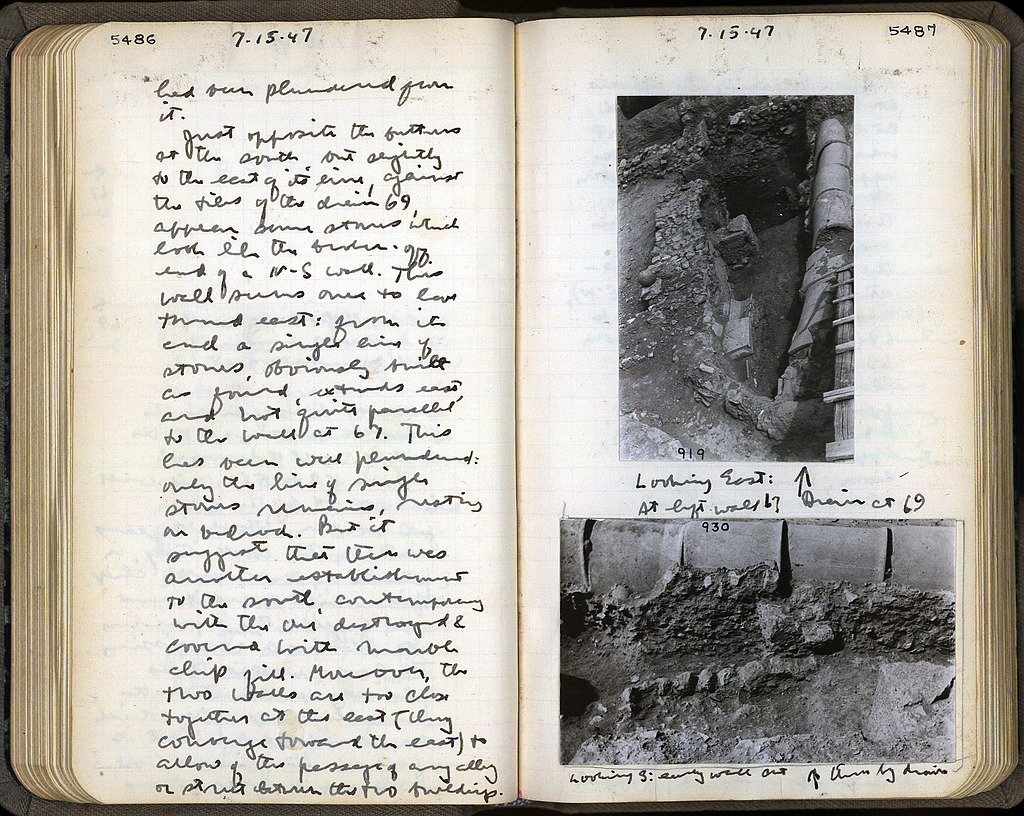 5486
7·15·47
had been plundered from
it.
Just opposite the buttress
at the south, but slightly
to the east of its line, against
the tiles of the drain 69,
appear some stones which
look like the broken-off
end of a N-S wall. This
wall seems once to have
turned east: from its
end a single line of
stones, obviously built
as found, extends east,
and not quite parallel
to the wall at 67. This
has been well plundered:
only the line of single
stones remains, resting
on bedrock. But it
suggests that there was
another establishment
to the south, contemporary
with the one destroyed &
covered with marble
chip fill. Moreover, the
two walls are too close
together at the east (they
converge toward the east) to
allow of the passage of any alley
or street between the two buildings.
7·15·47
5487
919
Looking East: ↑
At left wall 67 Drain at 69
930
Looking S: early wall cut ↑ thru by drain